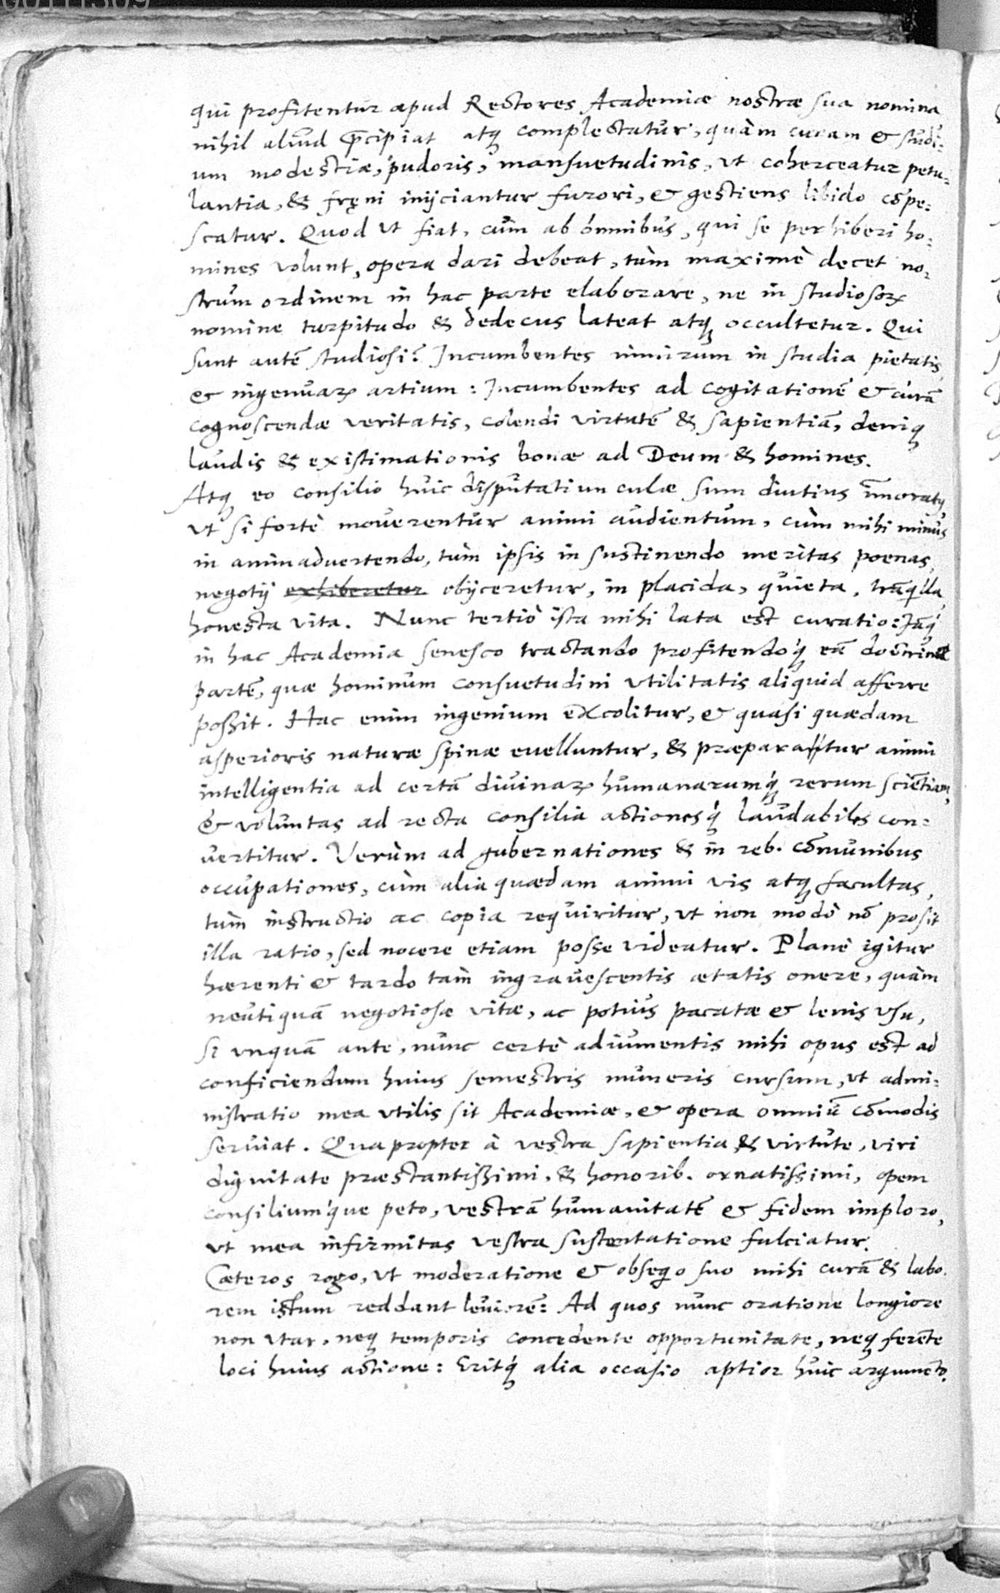 qui profitentur apud Rectores Academiæ nostræ sua nomina
nihil aliud p̄cipiat atq̨ complectatur, quàm curam & studi-
um modestiæ, pudoris, mansuetudinis, ut coherceatur petu-
lantia, & fręni inijciantur furori, & gestiens libido cōpe-
scatur. Quod ut fiat, cùm ab omnibus, qui se perhiberi ho-
mines volunt, opera dari debeat, tùm maximè decet no-
strum ordinem in hac parte elaborare, ne in studiosoꝝ
nomine turpitudo & dedecus lateat atq̨ occultetur. Qui
sunt autē studiosi? Incumbentes nimirum in studia pietatis
& ingenuaꝝ artium: Incumbentes ad cogitationē & curā
cognoscendæ veritatis, colendi virtutē & sapientiā, deniq̨
laudis & existimationis bonæ ad Deum & homines.
Atq̨ eo consilio huic disputatiunculæ sum diutius īmoratꝰ
ut si fortè moverentur animi audientum, cùm mihi minus
in animadvertendo, tùm ipsis in sustinendo meritas poenas,
negotij exhiberetur obijceretur, in placida, quieta, trāq̇lla
honesta vita. Nunc tertiò ista mihi lata est curatio: Iāq̨
in hac Academia senesco tractando profitendoq̨́ eā doctrinæ
partē, quæ hominum consuetudini utilitatis aliquid afferre
possit. Hac enim ingenium excolitur, & quasi quædam
asperioris naturæ spinæ evelluntur, & præparatur animi
intelligentia ad certā divinaꝝ humanarumq̨́ rerum scientiam,
& voluntas ad recta consilia actionesq̨́ laudabiles con-
vertitur. Verùm ad gubernationes & in reb. cōmunibus
occupationes, cùm alia quædam animi vis atq̨ facultas,
tùm instructio ac copia requiritur, ut non modò nō prosit
illa ratio, sed nocere etiam posse videatur. Planè igitur
hærenti & tardo tam ingravescentis ætatis onere, quàm
neutiquā negotiosæ vitæ, ac potius pacatæ & lenis usu,
si unquā ante, nunc certè adiumentis mihi opus est ad
conficiendum huius semestris muneris cursum, ut admi-
nistratio mea utilis sit Academiæ, & opera omniū cōmodis
serviat. Quapropter à vestra sapientia & virtute, viri
dignitate præstantissimi, & honorib. ornatissimi, opem
consiliumq́ue peto, vestrā humanitatē & fidem imploro,
ut mea infirmitas vestra sustentatione fulciatur.
Cæteros rogo, ut moderatione & obseq̇o suo mihi curā & labo-
rem istum reddant leviorē: Ad quos nunc oratione longiore
non utar, neq̨ temporis concedente opportunitate, neq̨ ferente
loci huius actione: Eritq̨́ alia occasio aptior huic argumēto.